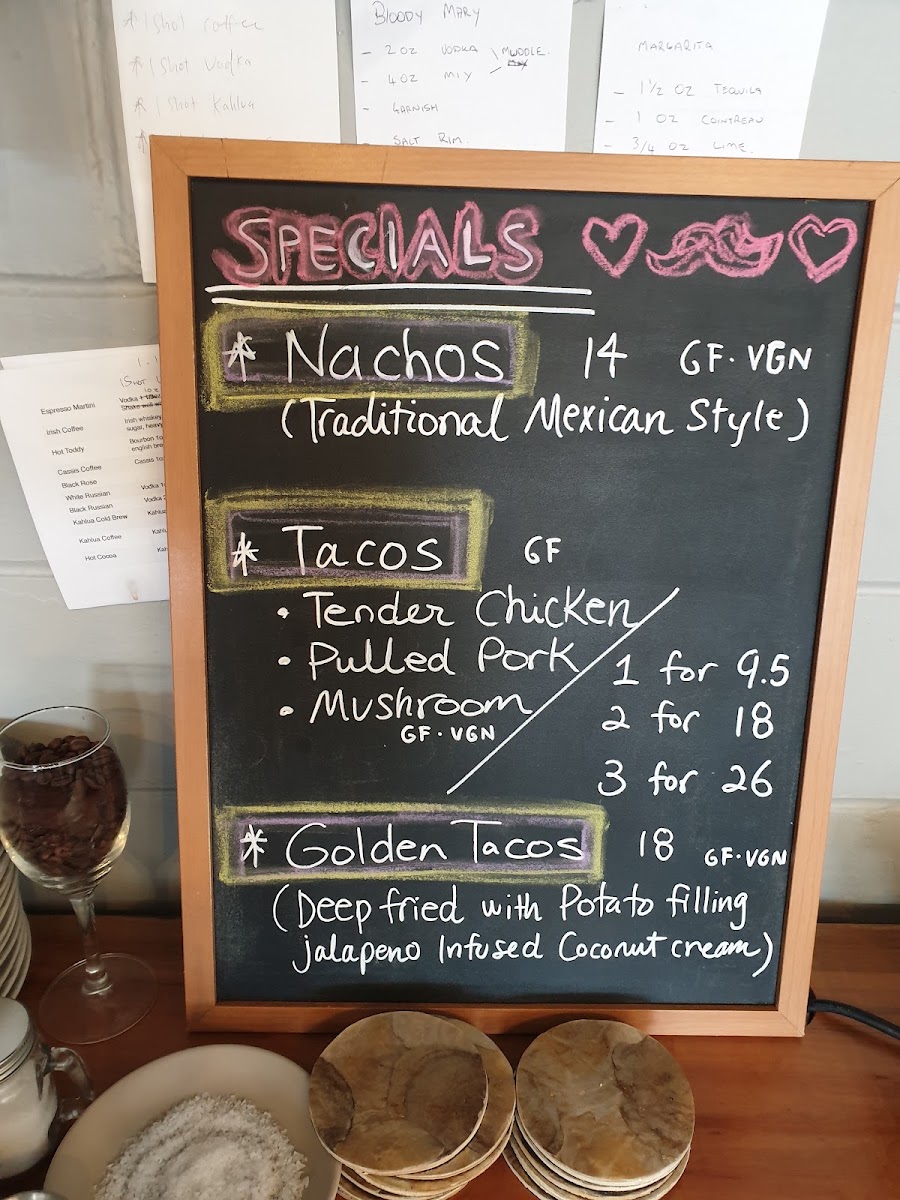 * 1 Shot coffee
* 1 Shot Vodka
* 1 Shot Kahlua
BLOODY MARY
- 2 OZ VODKA
MUDDLE.
- 4 OZ MIX
- GARNISH
SALT RIM.
MARGARITA
- 1 1/2 OZ TEQUILA
- 1 OZ COINTREAU
- 3/4 OZ LIME.
SPECIALS
* Nachos 14 GF·VGN
(Traditional Mexican Style)
* Tacos GF
• Tender Chicken
• Pulled Pork
• Mushroom
GF·VGN
1 for 9.5
2 for 18
3 for 26
* Golden Tacos 18 GF·VGN
(Deep fried with Potato filling
jalapeno Infused Coconut cream)
Espresso Martini Vodka
Irish Coffee Irish whiskey
sugar, heavy
Hot Toddy Bourbon 1o
english bre
Cassis Coffee Cassis 1o
Black Rose
White Russian Vodka 1
Black Russian Vodka
Kahlua Cold Brew Kahlu
Kahlua Coffee Kahl
Hot Cocoa Kah